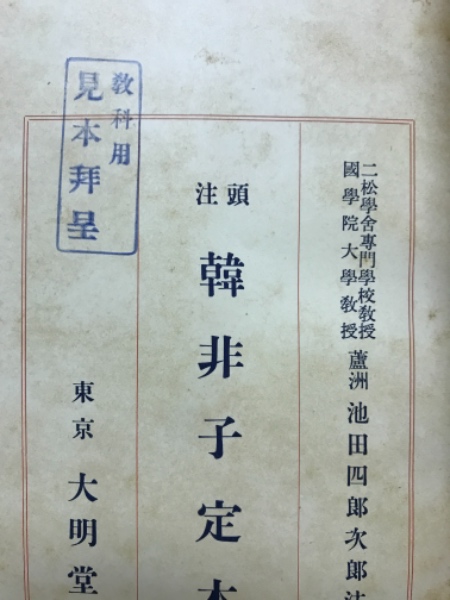 二松學舍專門學校敎授
國學院大學敎授
蘆洲 池田四郎次郎
頭注
韓非子定本
東京 大明堂
敎科用
見本拜呈